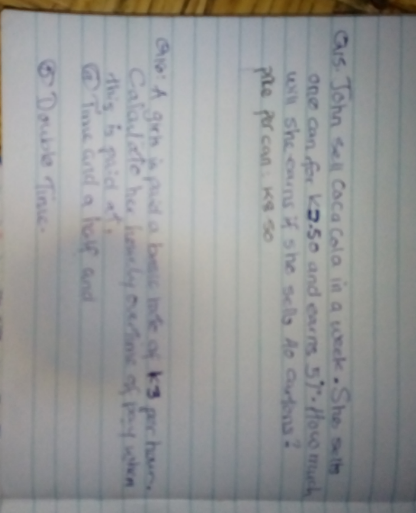 Q15 John sell Coca Cola in a week. She sells
one can for K2.50 and earns 5%. How much
will she earns if she sells 40 cartons?
price per can = K2.50
Q16: A girl is paid a basic rate of K3 per hour.
Calculate her hourly overtime of pay when
this is paid at;
(a) Time and a half and
(b) Double Time.